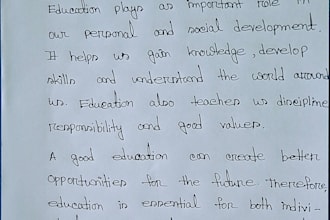 Education plays as important role in
our personal and social development.
It helps us gain knowledge, develop
skills and understand the world around
us. Education also teaches us discipline
responsibility and good values.
A good education can create better
opportunities for the future. Therefore,
education is essential for both indivi-